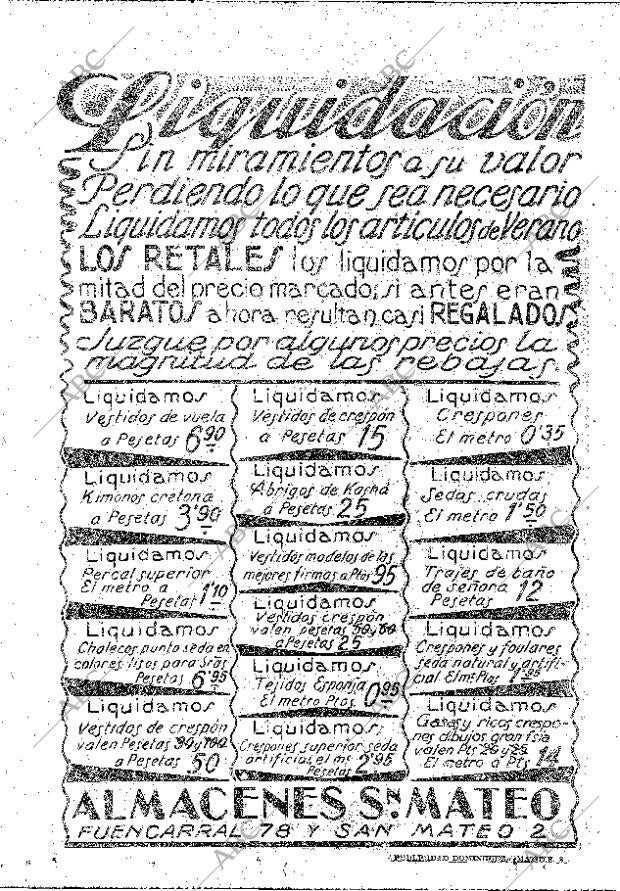 Liquidación
Sin miramientos a su valor
Perdiendo lo que sea necesario
Liquidamos todos los articulos de Verano
LOS RETALES los liquidamos por la
mitad del precio marcado; si antes eran
BARATOS ahora resultan casi REGALADOS
Juzgue por algunos precios la
magnitud de las rebajas
Liquidamos
Vestidos de vuela
a Pesetas 6'90
Liquidamos
Kimonos cretona
a Pesetas 3'90
Liquidamos
Percal superior
El metro a
Pesetas 1'10
Liquidamos
Chalecos punto seda en
colores lisos para Sras
Pesetas 6'95
Liquidamos
Vestidos de crespón
valen Pesetas 90 y 100
a Pesetas 50
Liquidamos
Vestidos de crespón
a Pesetas 15
Liquidamos
Abrigos de Kasha
á Pesetas 25
Liquidamos
Vestidos modelos de las
mejores firmas a Ptas 95
Liquidamos
Vestidos crespón
valen pesetas 50 y 60
a Pesetas 25
Liquidamos
Tejidos Esponja
El metro Ptas 0'95
Liquidamos
Crespones superior seda
artificial el mt
Pesetas 2'95
Liquidamos
Crespones
El metro 0'35
Liquidamos
Sedas crudas
El metro 1'50
Liquidamos
Trajes de baño
de señora
Pesetas 12
Liquidamos
Crespones y foulares
seda natural y artifi-
cial El mt Ptas 1'95
Liquidamos
Gasas y ricos crespo-
nes dibujos gran fsia
valen Pts 20 y 25
El metro á Pts 14
ALMACENES Sn. MATEO
FUENCARRAL 78 Y SAN MATEO 2
PUBLICIDAD DOMINGUEZ
ABC